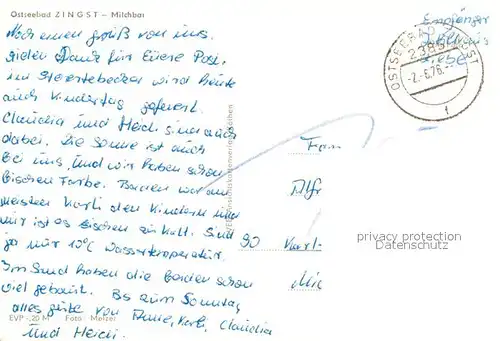 Ostseebad ZINGST – Milchbar
Noch einen Gruß von uns.
Vielen Dank für Euere Post.
Im Störtebecker wird heute
auch Kindertag gefeiert.
Claudia und Heidi sind auch
dabei. Die Sonne ist auch
bei uns, und wir haben schon
bischen Farbe. Baden war am
meisten Karli den Kindern und
mir ist es bischen zu kalt. Sind
ja nur 10°C Wassertemperatur.
Im Sand haben die beiden schon
viel gebaut. Bis zum Sonntag
alles gute von Karli, Claudia
und Heidi.
EVP -,20 M Foto: Melzer
Empfänger
OSTSEEBAD ZINGST
2385
-2.-6.76.
Fam
Alfr
90 Karl-
privacy protection
Datenschutz